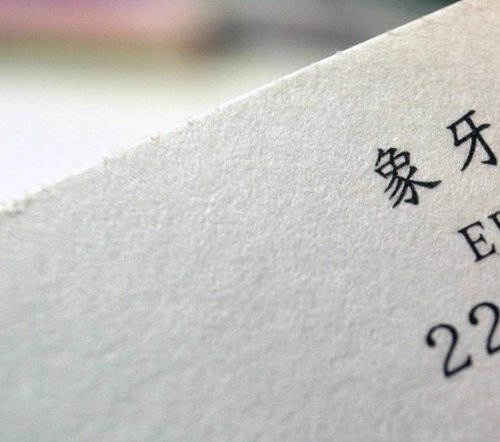 象牙
22